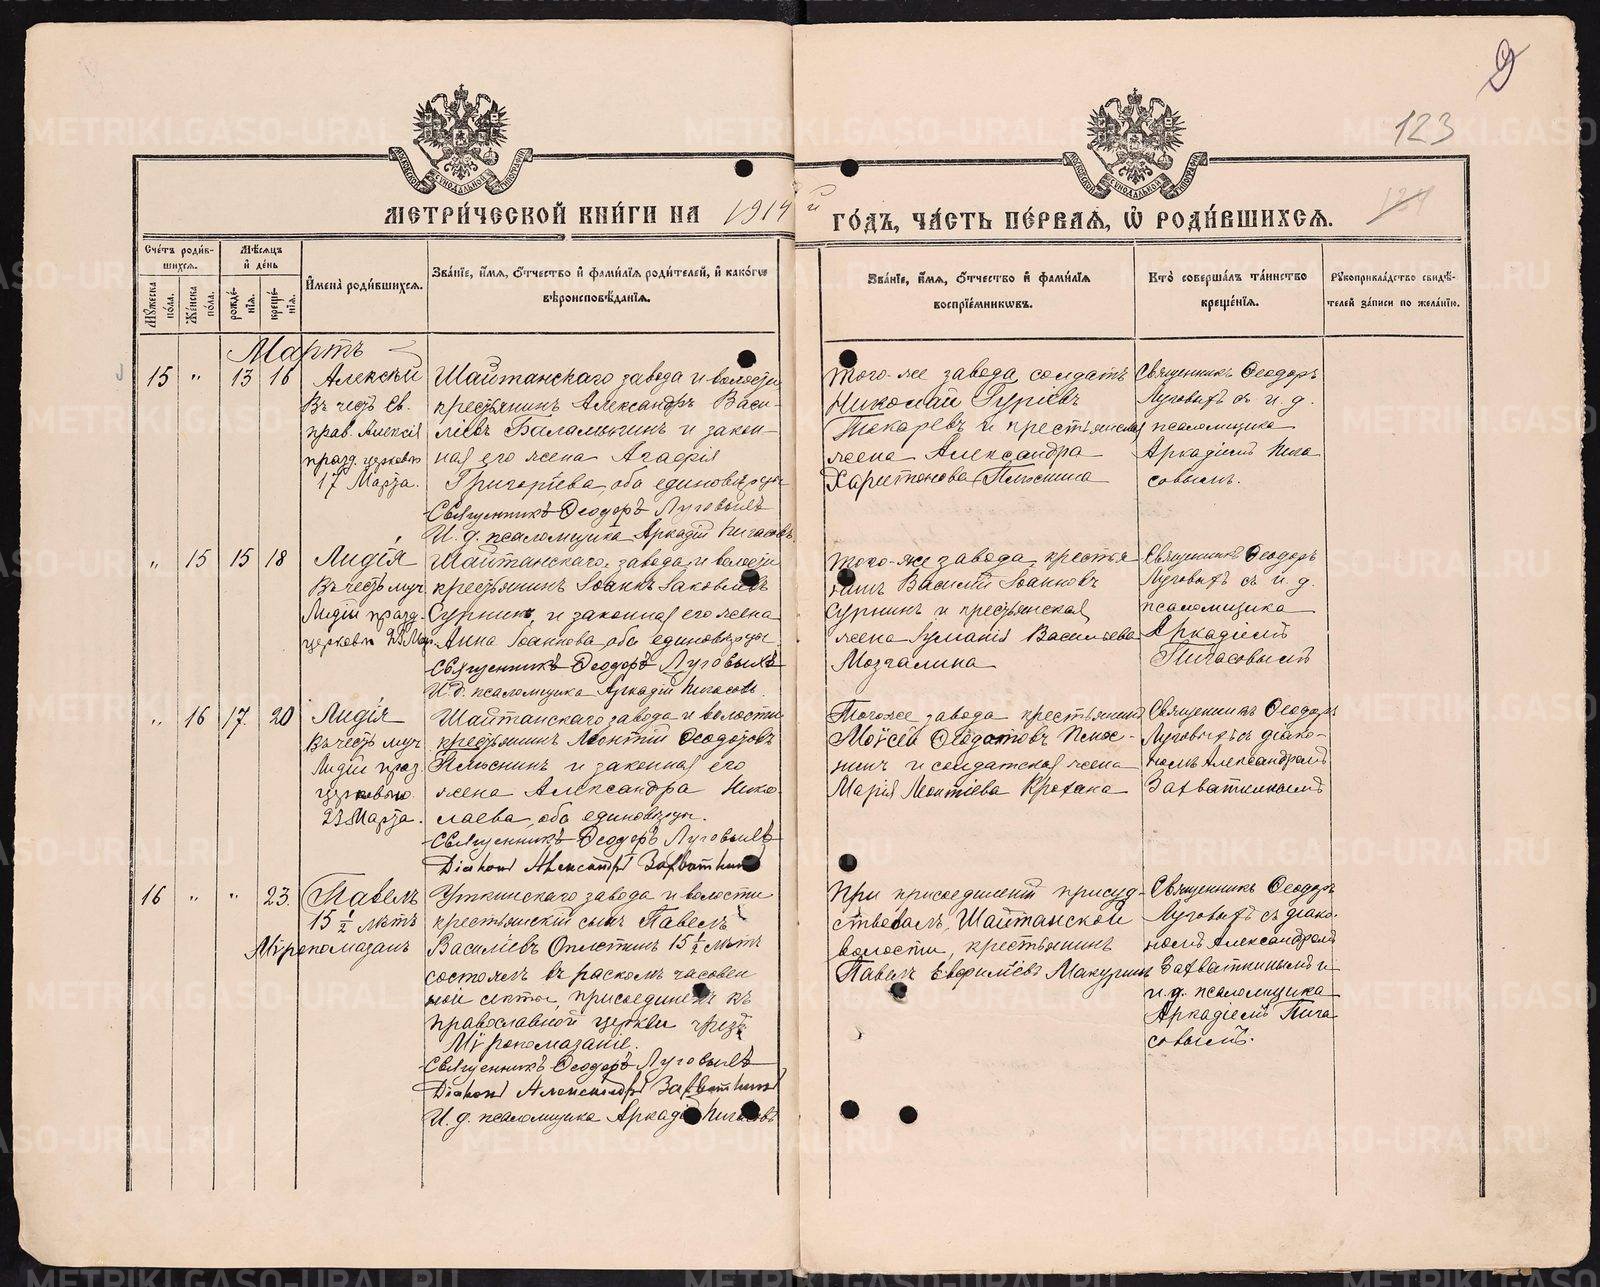 Д
123
124
МОСКОВСКОЙ СѴНОДАЛЬНОЙ ТИПОГРАФІИ
МОСКОВСКОЙ СѴНОДАЛЬНОЙ ТИПОГРАФІИ
МЕТРИ́ЧЕСКОЙ КНИ́ГИ НА 1914 й ГО́ДЪ, ЧА́СТЬ ПЕ́РВАЯ, Ѽ РОДИ́ВШИХСЯ.
Сче́тъ роди́в-
шихся.
Мѣ́сяцъ
и҆ де́нь
Му́жеска по́ла.
Же́нска по́ла.
рожде́нїя.
креще́нїя.
И҆мена̀ роди́вшихся.
Зва́нїе, и҆́мя, ѻ҆́тчество и҆ фами́лїя роди́телей, и҆ како́гѡ
вѣроисповѣ́данїя.
Зва́нїе, и҆́мя, ѻ҆́тчество и҆ фами́лїя
воспрїе́мниковъ.
Кто̀ соверша́лъ та́инство
креще́нїя.
Рꙋкоприкла́дство свидѣ́-
телей за́писи по жела́нїю.
Мартъ
15 " 13 16
Алексѣй
Въ честь Св.
прав. Алексія
празд. церковью
17 Марта.
Шайтанскаго завода и волости
крестьянинъ Александръ Васи-
ліевъ Баламыгинъ и закон-
ная его жена Агафія
Григоріева, оба единовѣрцы
Священникъ Ѳеодоръ Луговыхъ
И. д. псаломщика Аркадій Пигасовъ.
того-же завода солдатъ
Николай Гуріевъ
Токаревъ и крестьянская
жена Александра
Харитонова Плюснина
Священникъ Ѳеодоръ
Луговыхъ съ и. д.
псаломщика
Аркадіемъ Пига
совымъ.
" 15 15 18
Лидія
Въ честь муч.
Лидіи празд.
церковью 23 Мар.
Шайтанскаго завода и волости
крестьянинъ Іоаннъ Іаковлевъ
Сурнинъ, и законная его жена
Анна Іоаннова, оба единовѣрцы
Священникъ Ѳеодоръ Луговыхъ
И. д. псаломщика Аркадій Пигасовъ.
того-же завода крестья
нинъ Василій Іоанновъ
Сурнинъ и крестьянская
жена Васильева
Мозгалина
Священникъ Ѳеодоръ
Луговыхъ съ и. д.
псаломщика
Аркадіемъ
Пигасовымъ
" 16 17. 20
Лидія
Въ честь муч
Лидіи праз
церковью
23 Марта.
Шайтанскаго завода и волости
крестьянинъ Леонтій Ѳеодотовъ
Плюснинъ и законная его
жена Александра Нико
лаева, оба единовѣрцы.
Священникъ Ѳеодоръ Луговыхъ
Діаконъ Александръ Захваткинъ
Тогоже завода крестьянинъ
Моѵсей Ѳеодотовъ Плюс-
нинъ и солдатская жена
Марія Леонтіева
Священникъ Ѳеодоръ
Луговыхъ съ діако-
номъ Александромъ
Захваткинымъ
16 " " 23.
Павелъ
15 ½ лѣтъ
Мѵропомазанъ
Уткинскаго завода и волости
крестьянскій сынъ Павелъ
Василіевъ Оплѣткинъ 15 ½ лѣтъ
состоялъ въ расколѣ часовен
ной секты, присоединенъ къ
православной церкви чрезъ
Мѵропомазаніе.
Священникъ Ѳеодоръ Луговыхъ
Діаконъ Александръ Захваткинъ
И. д. псаломщика Аркадій Пигасовъ
При присоединеніи присут-
ствовалъ, Шайтанской
волости, крестьянинъ
Павелъ Евфиміевъ Макуринъ
Священникъ Ѳеодоръ
Луговыхъ съ діако-
номъ Александромъ
Захваткинымъ и
и. д. псаломщика
Аркадіемъ Пига
совымъ.
METRIKI.GASO-URAL.RU